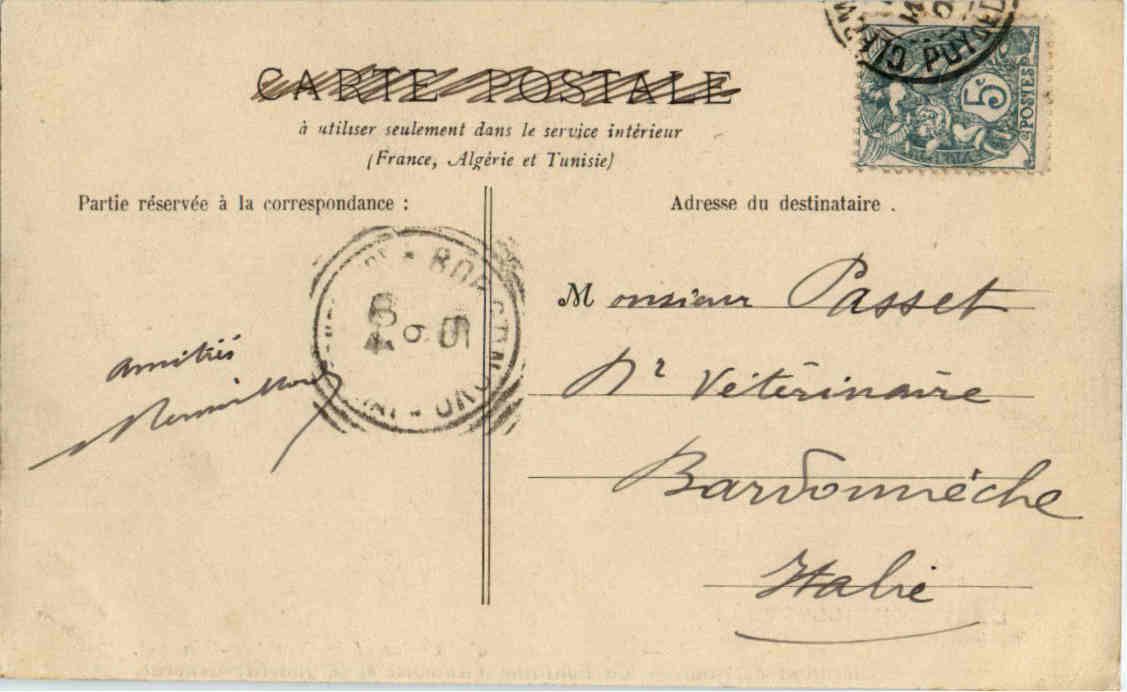 CARTE POSTALE
à utiliser seulement dans le service intérieur
(France, Algérie et Tunisie)
Partie réservée à la correspondance :
Adresse du destinataire .
5c
POSTES
PUY DE
Amitiés
Monsieur Passet
Dr Vétérinaire
Bardonnèche
Italie